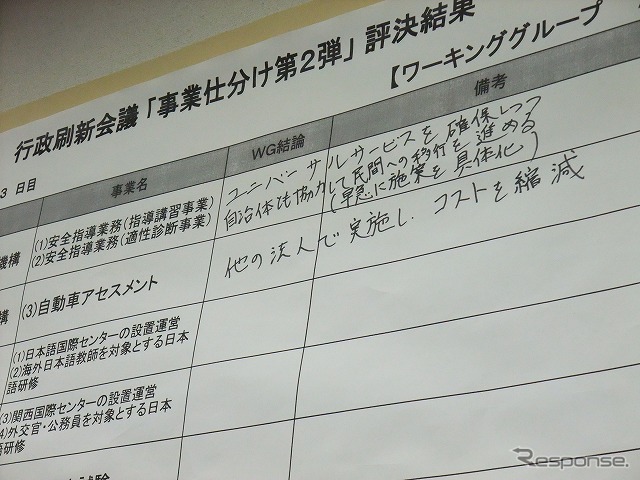 行政刷新会議「事業仕分け第2弾」評決結果
【ワーキンググループ
3 日目
事業名
WG結論
備考
機構
(1)安全指導業務(指導講習事業)
(2)安全指導業務(適性診断事業)
ユニバーサルサービスを確保しつつ
自治体も協力して民間への移行を進める
(早急に施策を具体化)
構
(3)自動車アセスメント
他の法人で実施し、コストを縮減
(1)日本語国際センターの設置運営
(2)海外日本語教師を対象とする日本
語研修
(3)関西国際センターの設置運営
(4)外交官・公務員を対象とする日本
語研修
Response.